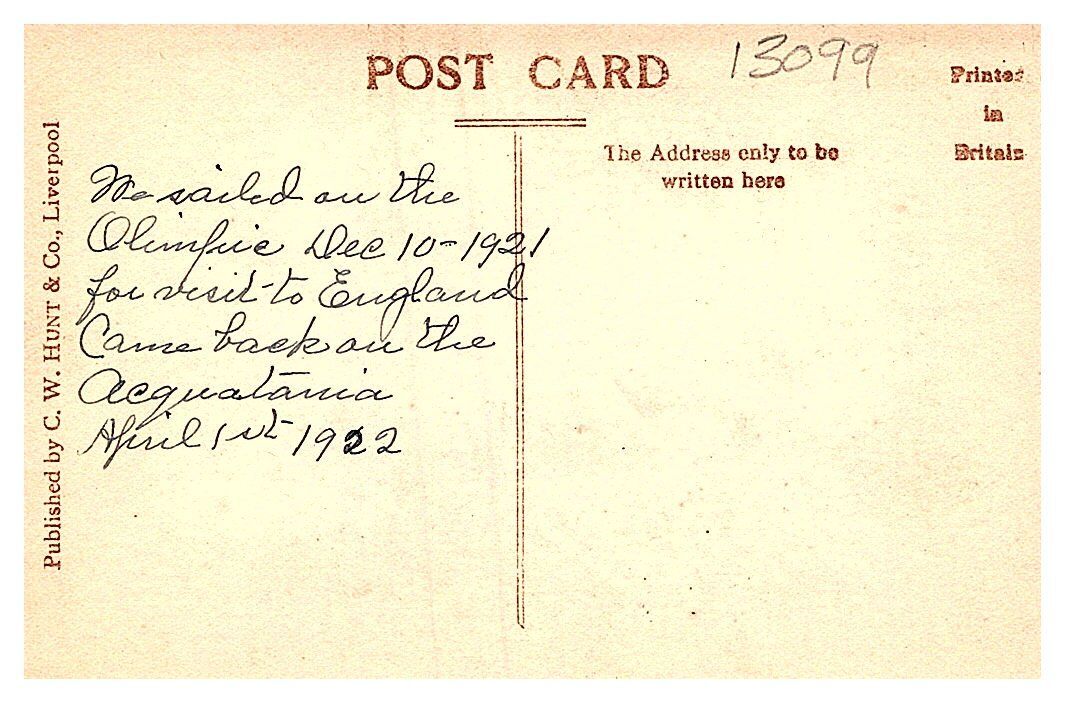 POST CARD
13099
Printed
in
Britain
The Address only to be
written here
Published by C. W. HUNT & Co., Liverpool
We sailed on the
Olimpic Dec 10-1921
for visit to England
Came back on the
Acquatania
April 1st 1922